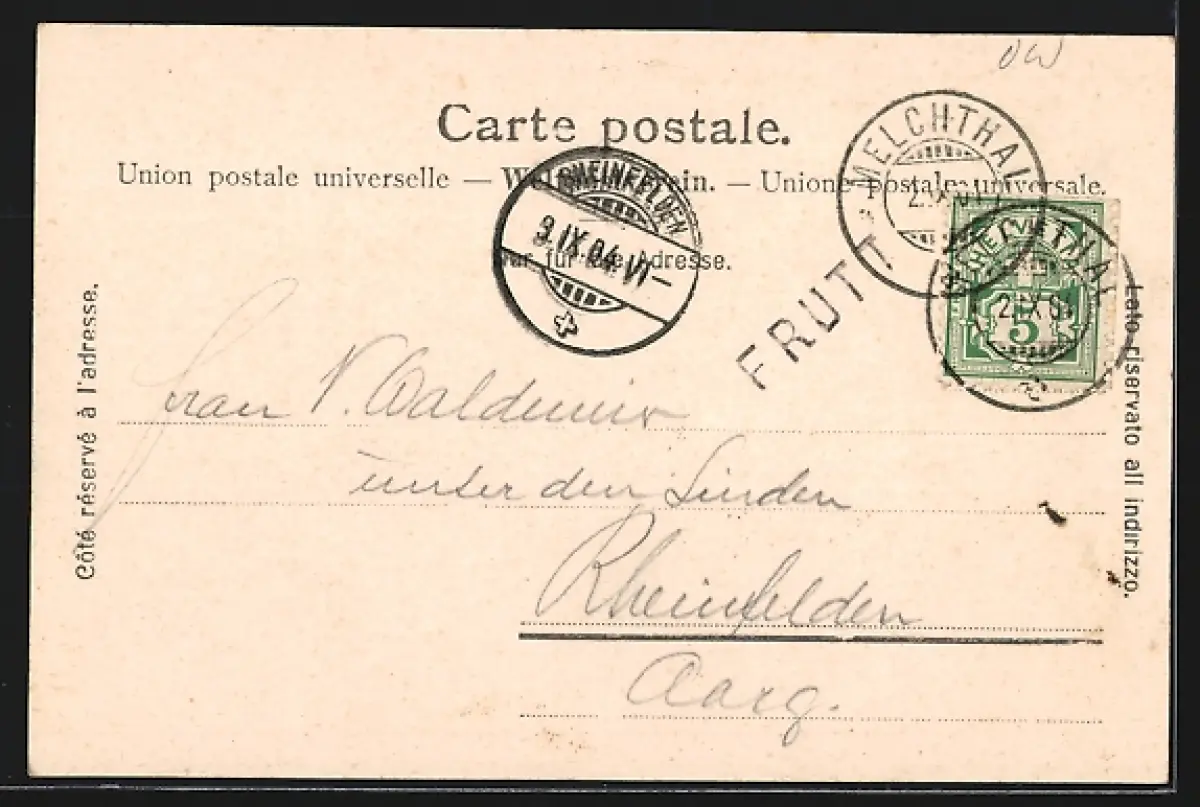 OW
Carte postale.
Union postale universelle — Weltpostverein. — Unione postale universale.
Nur für die Adresse.
RHEINFELDEN
3.IX.04.VI–
MELCHTHAL
2.IX.04
MELCHTHAL
2.IX.04
5
FRUTT
Côté réservé à l'adresse.
Lato riservato all indirizzo.
Frau V.
unter den Linden
Rheinfelden
Aarg.